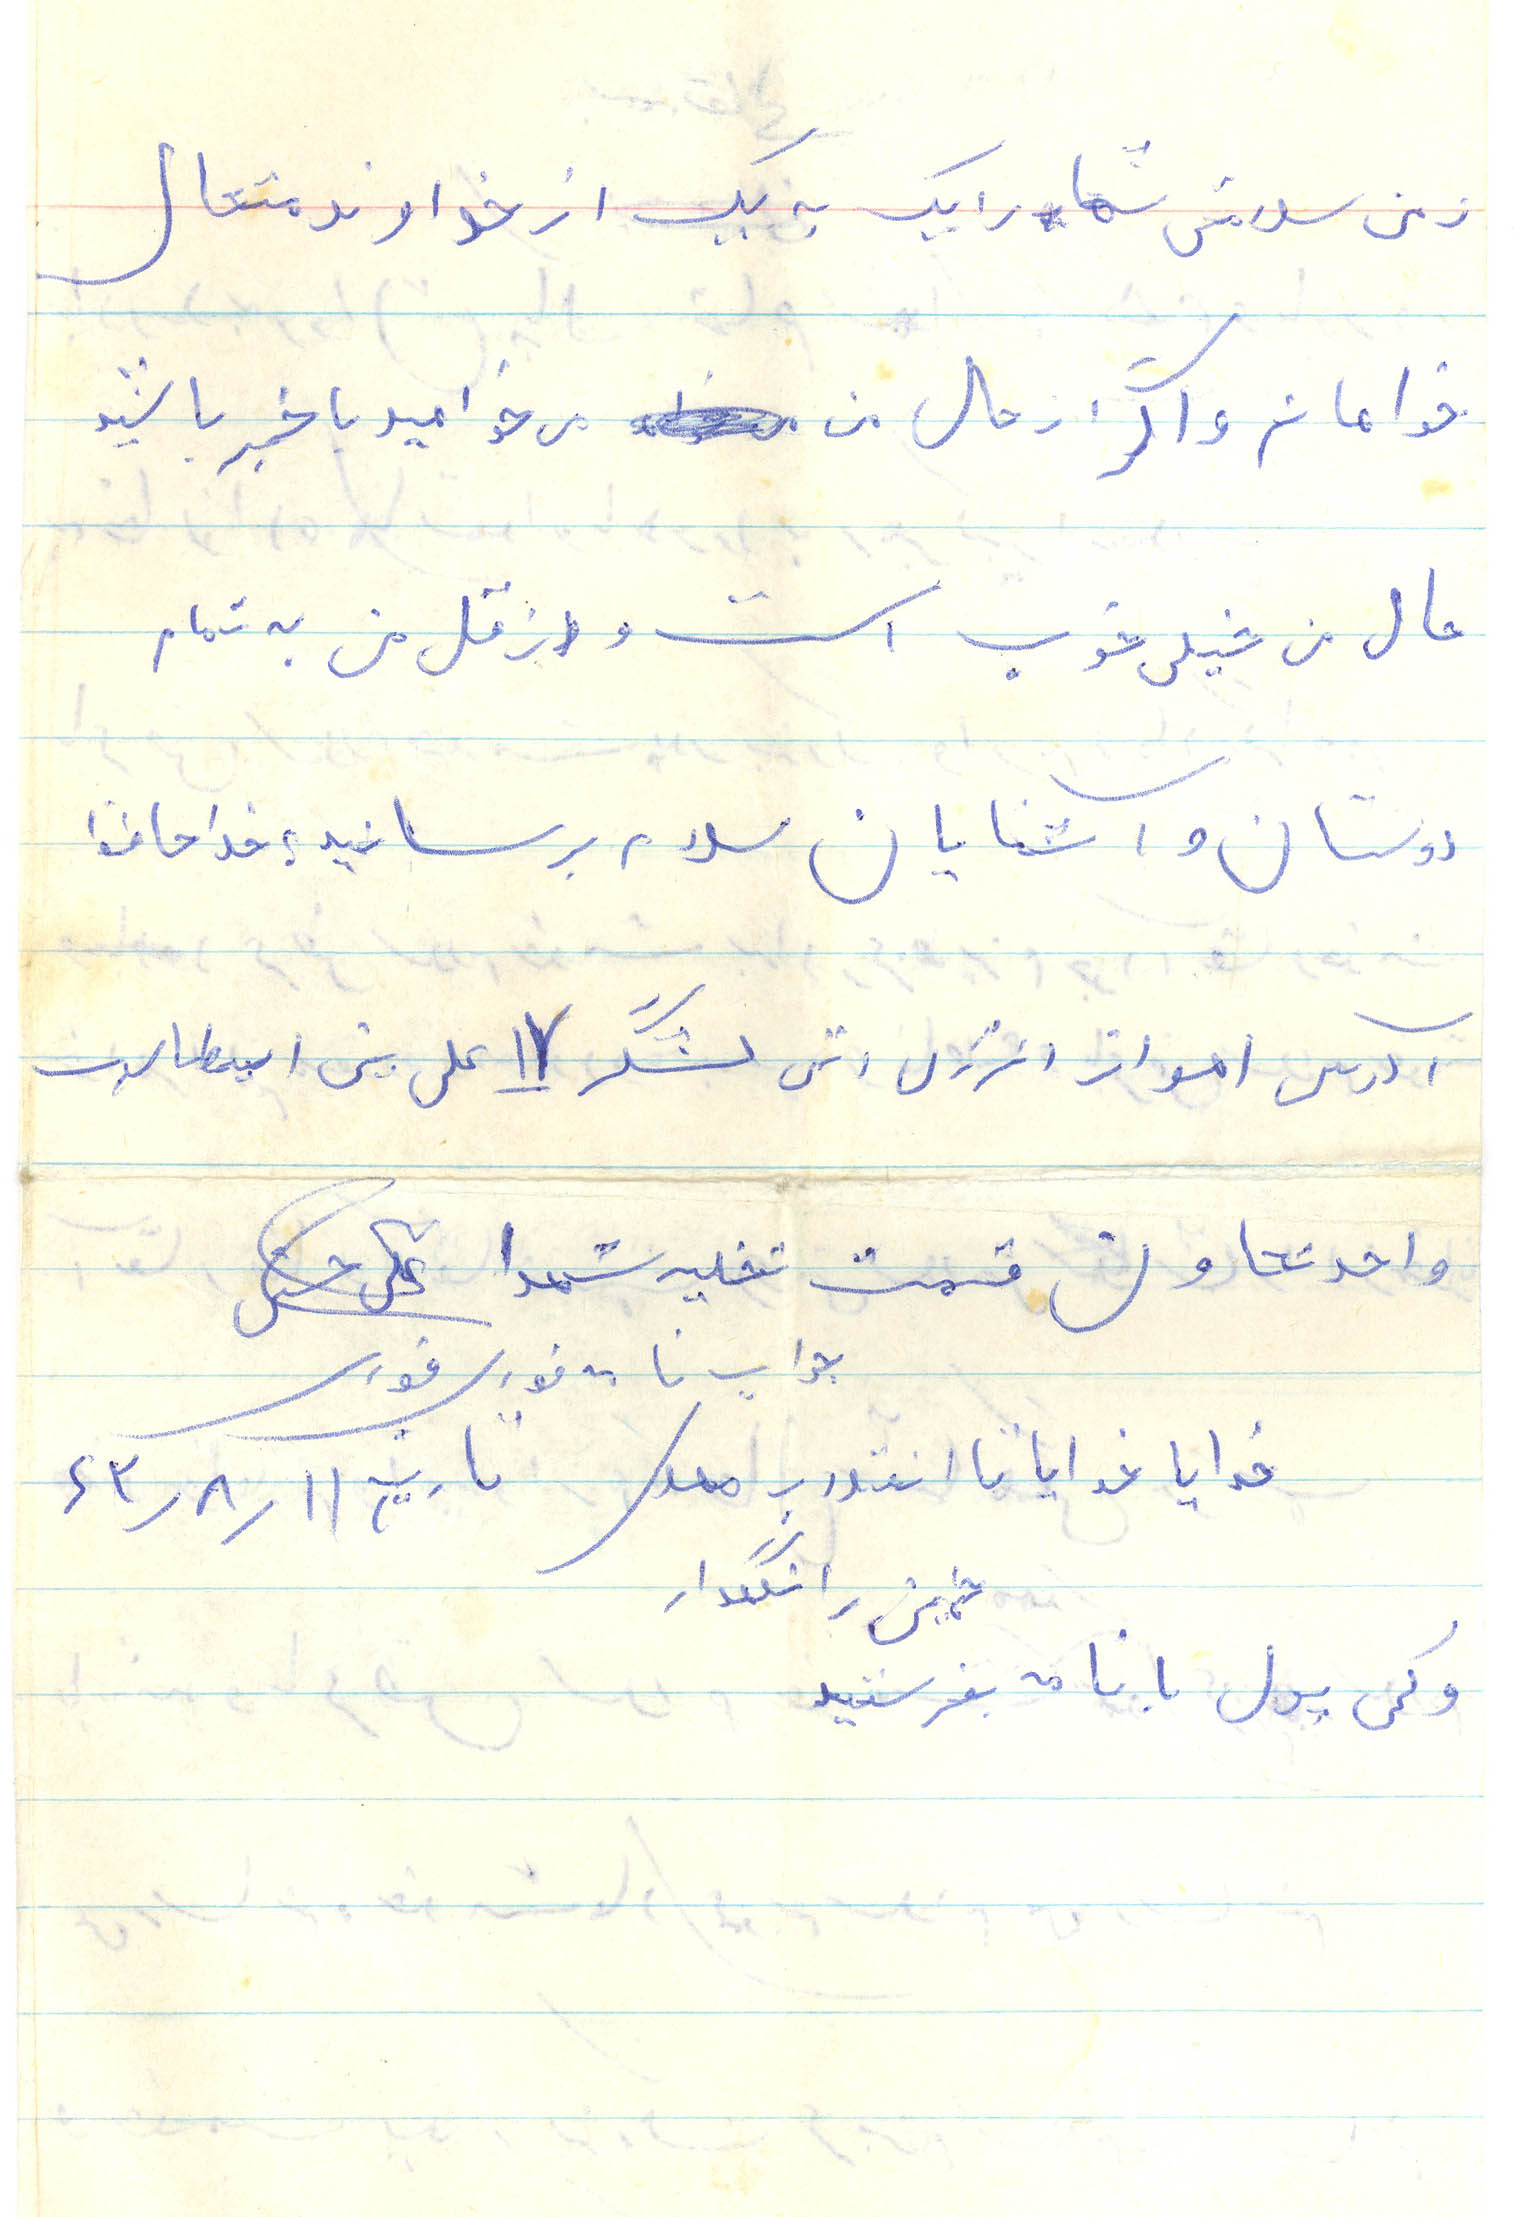 زمن سلامتی شما را یک به یک از خداوند متعال
خواهانم و اگر از حال من می خواهید با خبر باشید
حال من خیلی خوب است و از قل من به تمام
دوستان و آشنایان سلام برسانید خداحافظ
آدرس اهواز انرژی اتمی لشگر ۱۷ علی بن ابیطالب
واحد تعاون قسمت تخلیه شهدا علی
جواب نامه فوری فوری
خدایا خدایا تا انقلاب مهدی
تاریخ ۶۳/۸/۱۱
خمینی را نگهدار
و کمی پول با نامه بفرستید